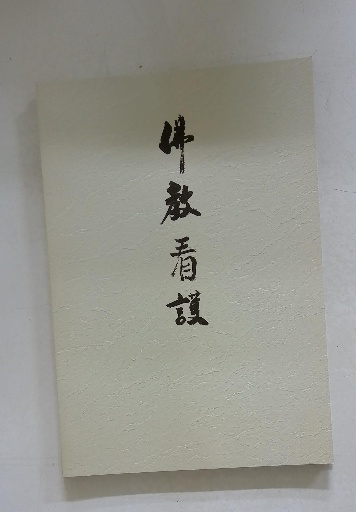 佛教看護